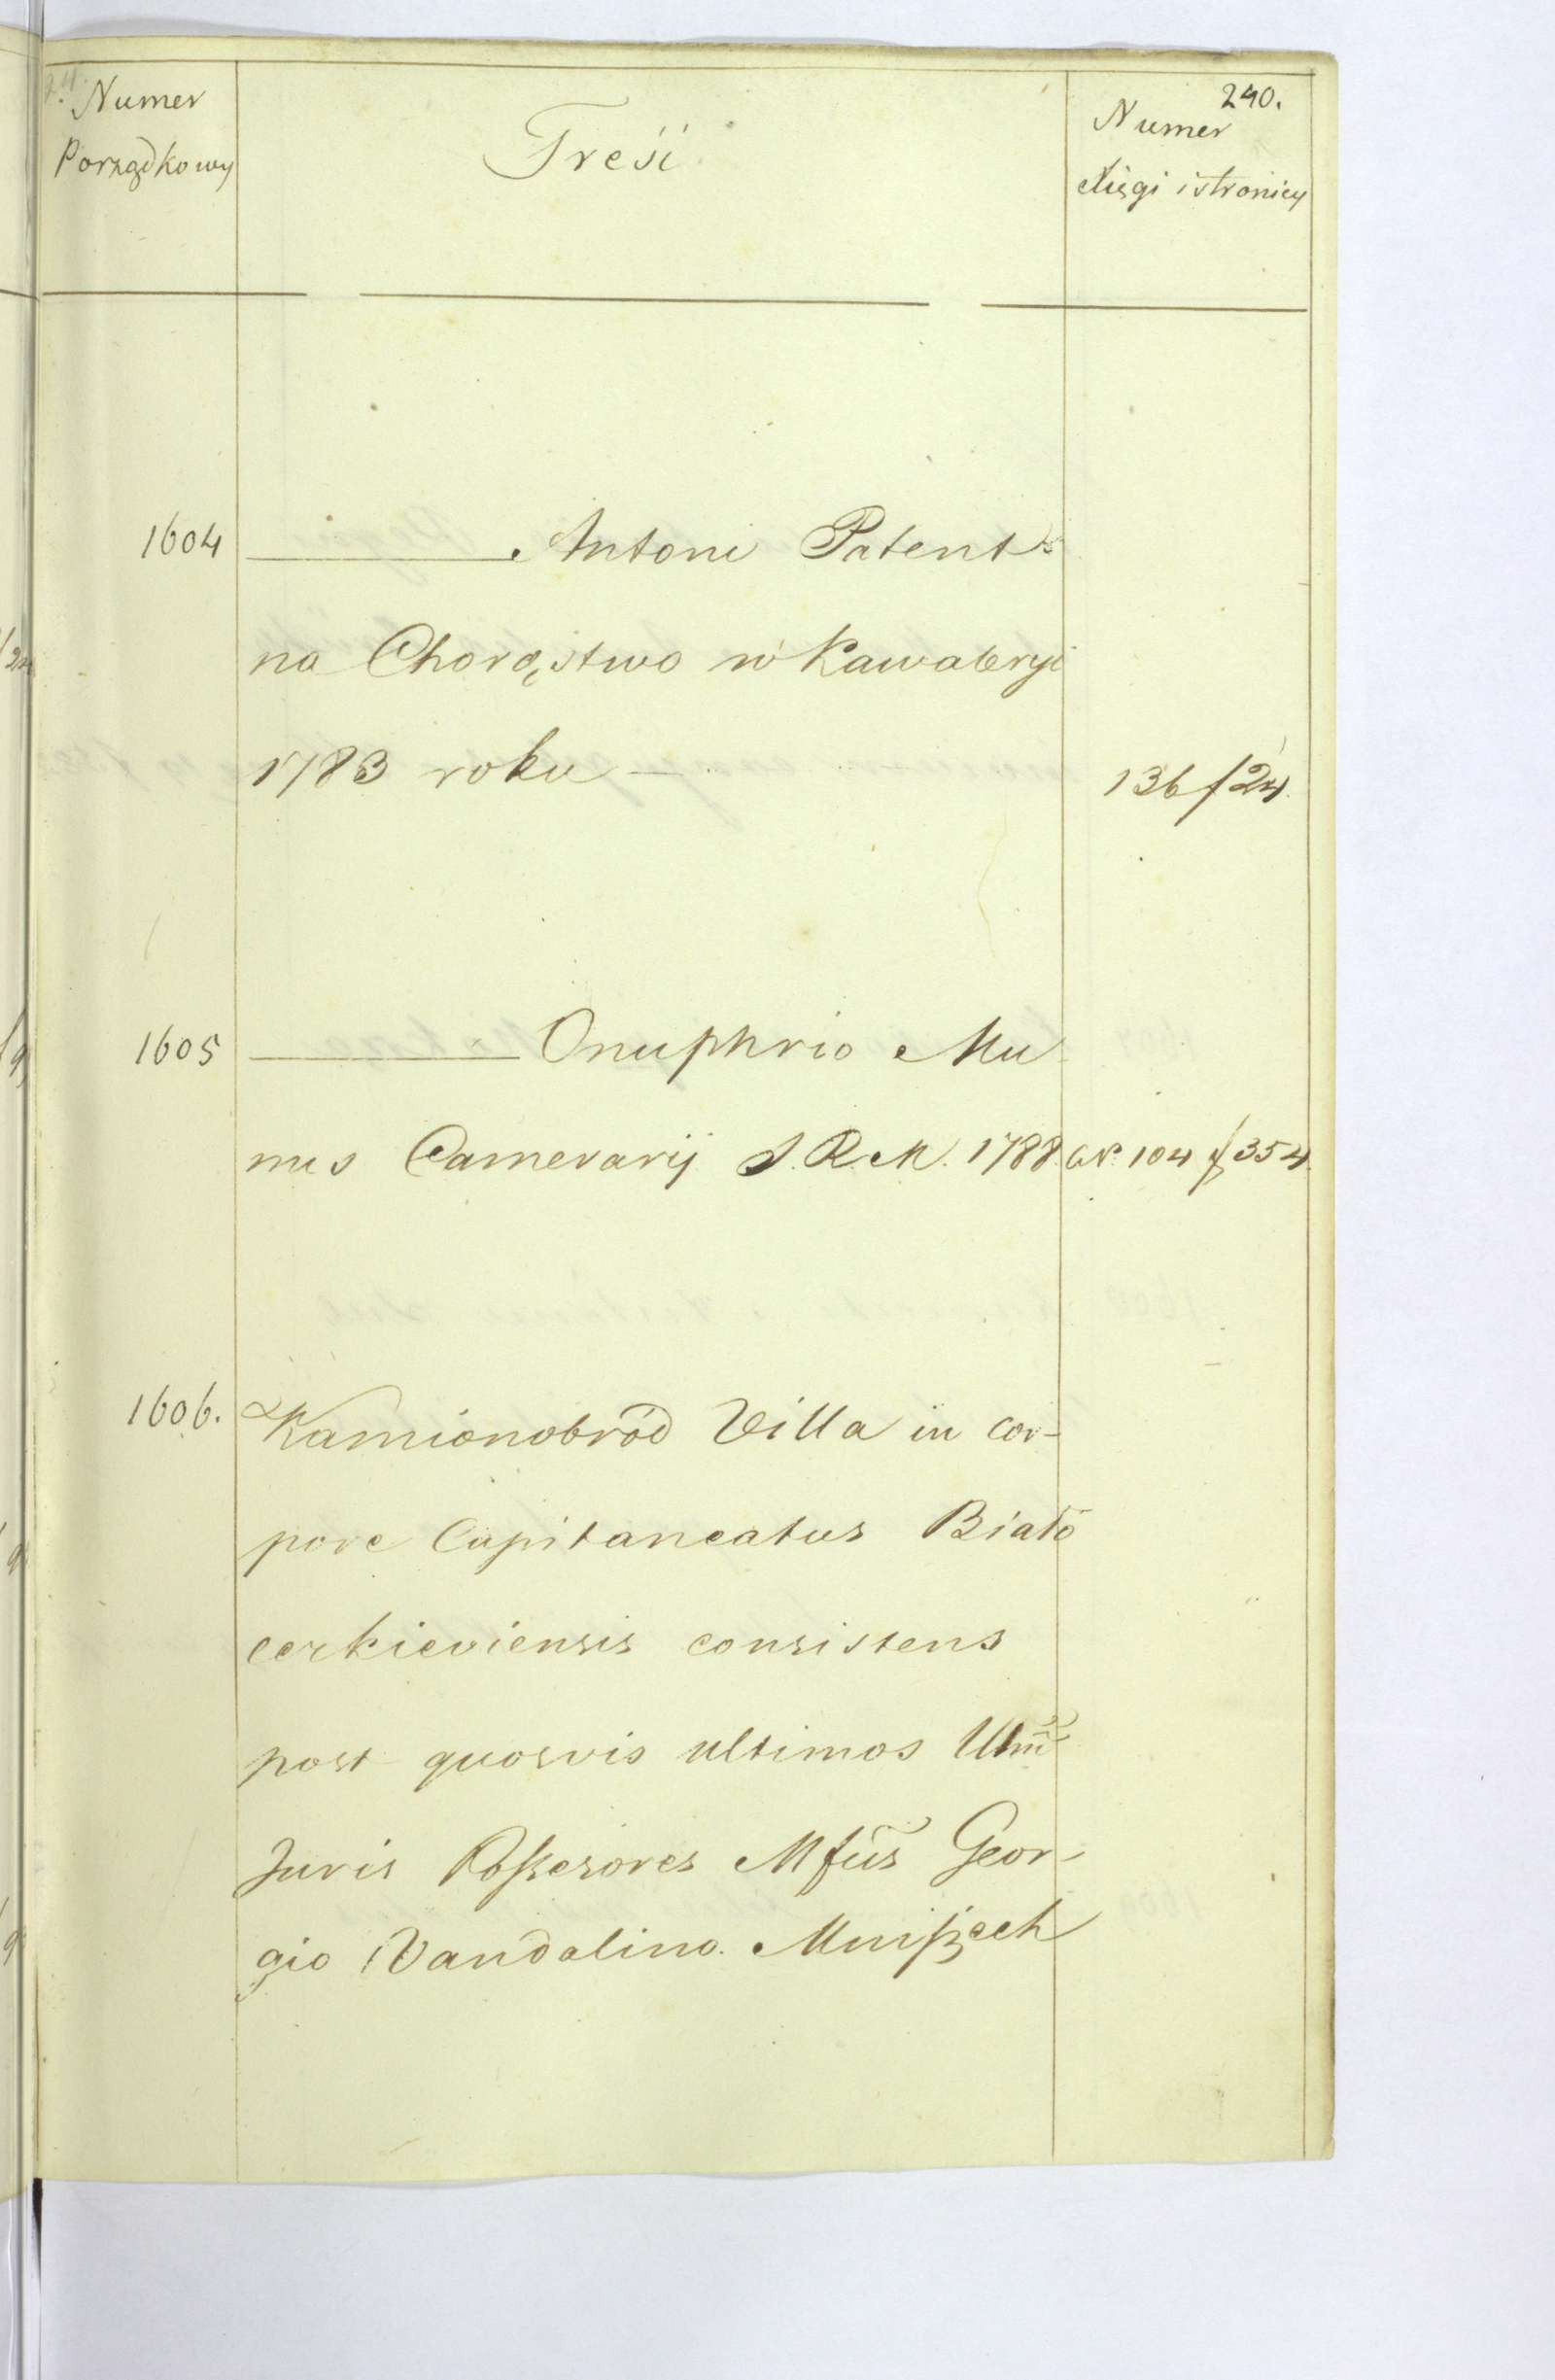 240.
Numer
Porządkowy
Treść
Numer
Xięgi i stronicy
1604 ——— Antoni Patent
na Chorąstwo w Kawaleryi
1783 roku — 136/24
1605 ——— Onuphrio Mu
nus Camerarij S. R. M. 1788 N. 104 f 354
1606. Kamionobród Villa in cor-
pore Capitaneatus Biało
cerkieviensis consistens
post quosvis ultimos
Juris Possesores Mfus Geor-
gio Vandalino Mniszech